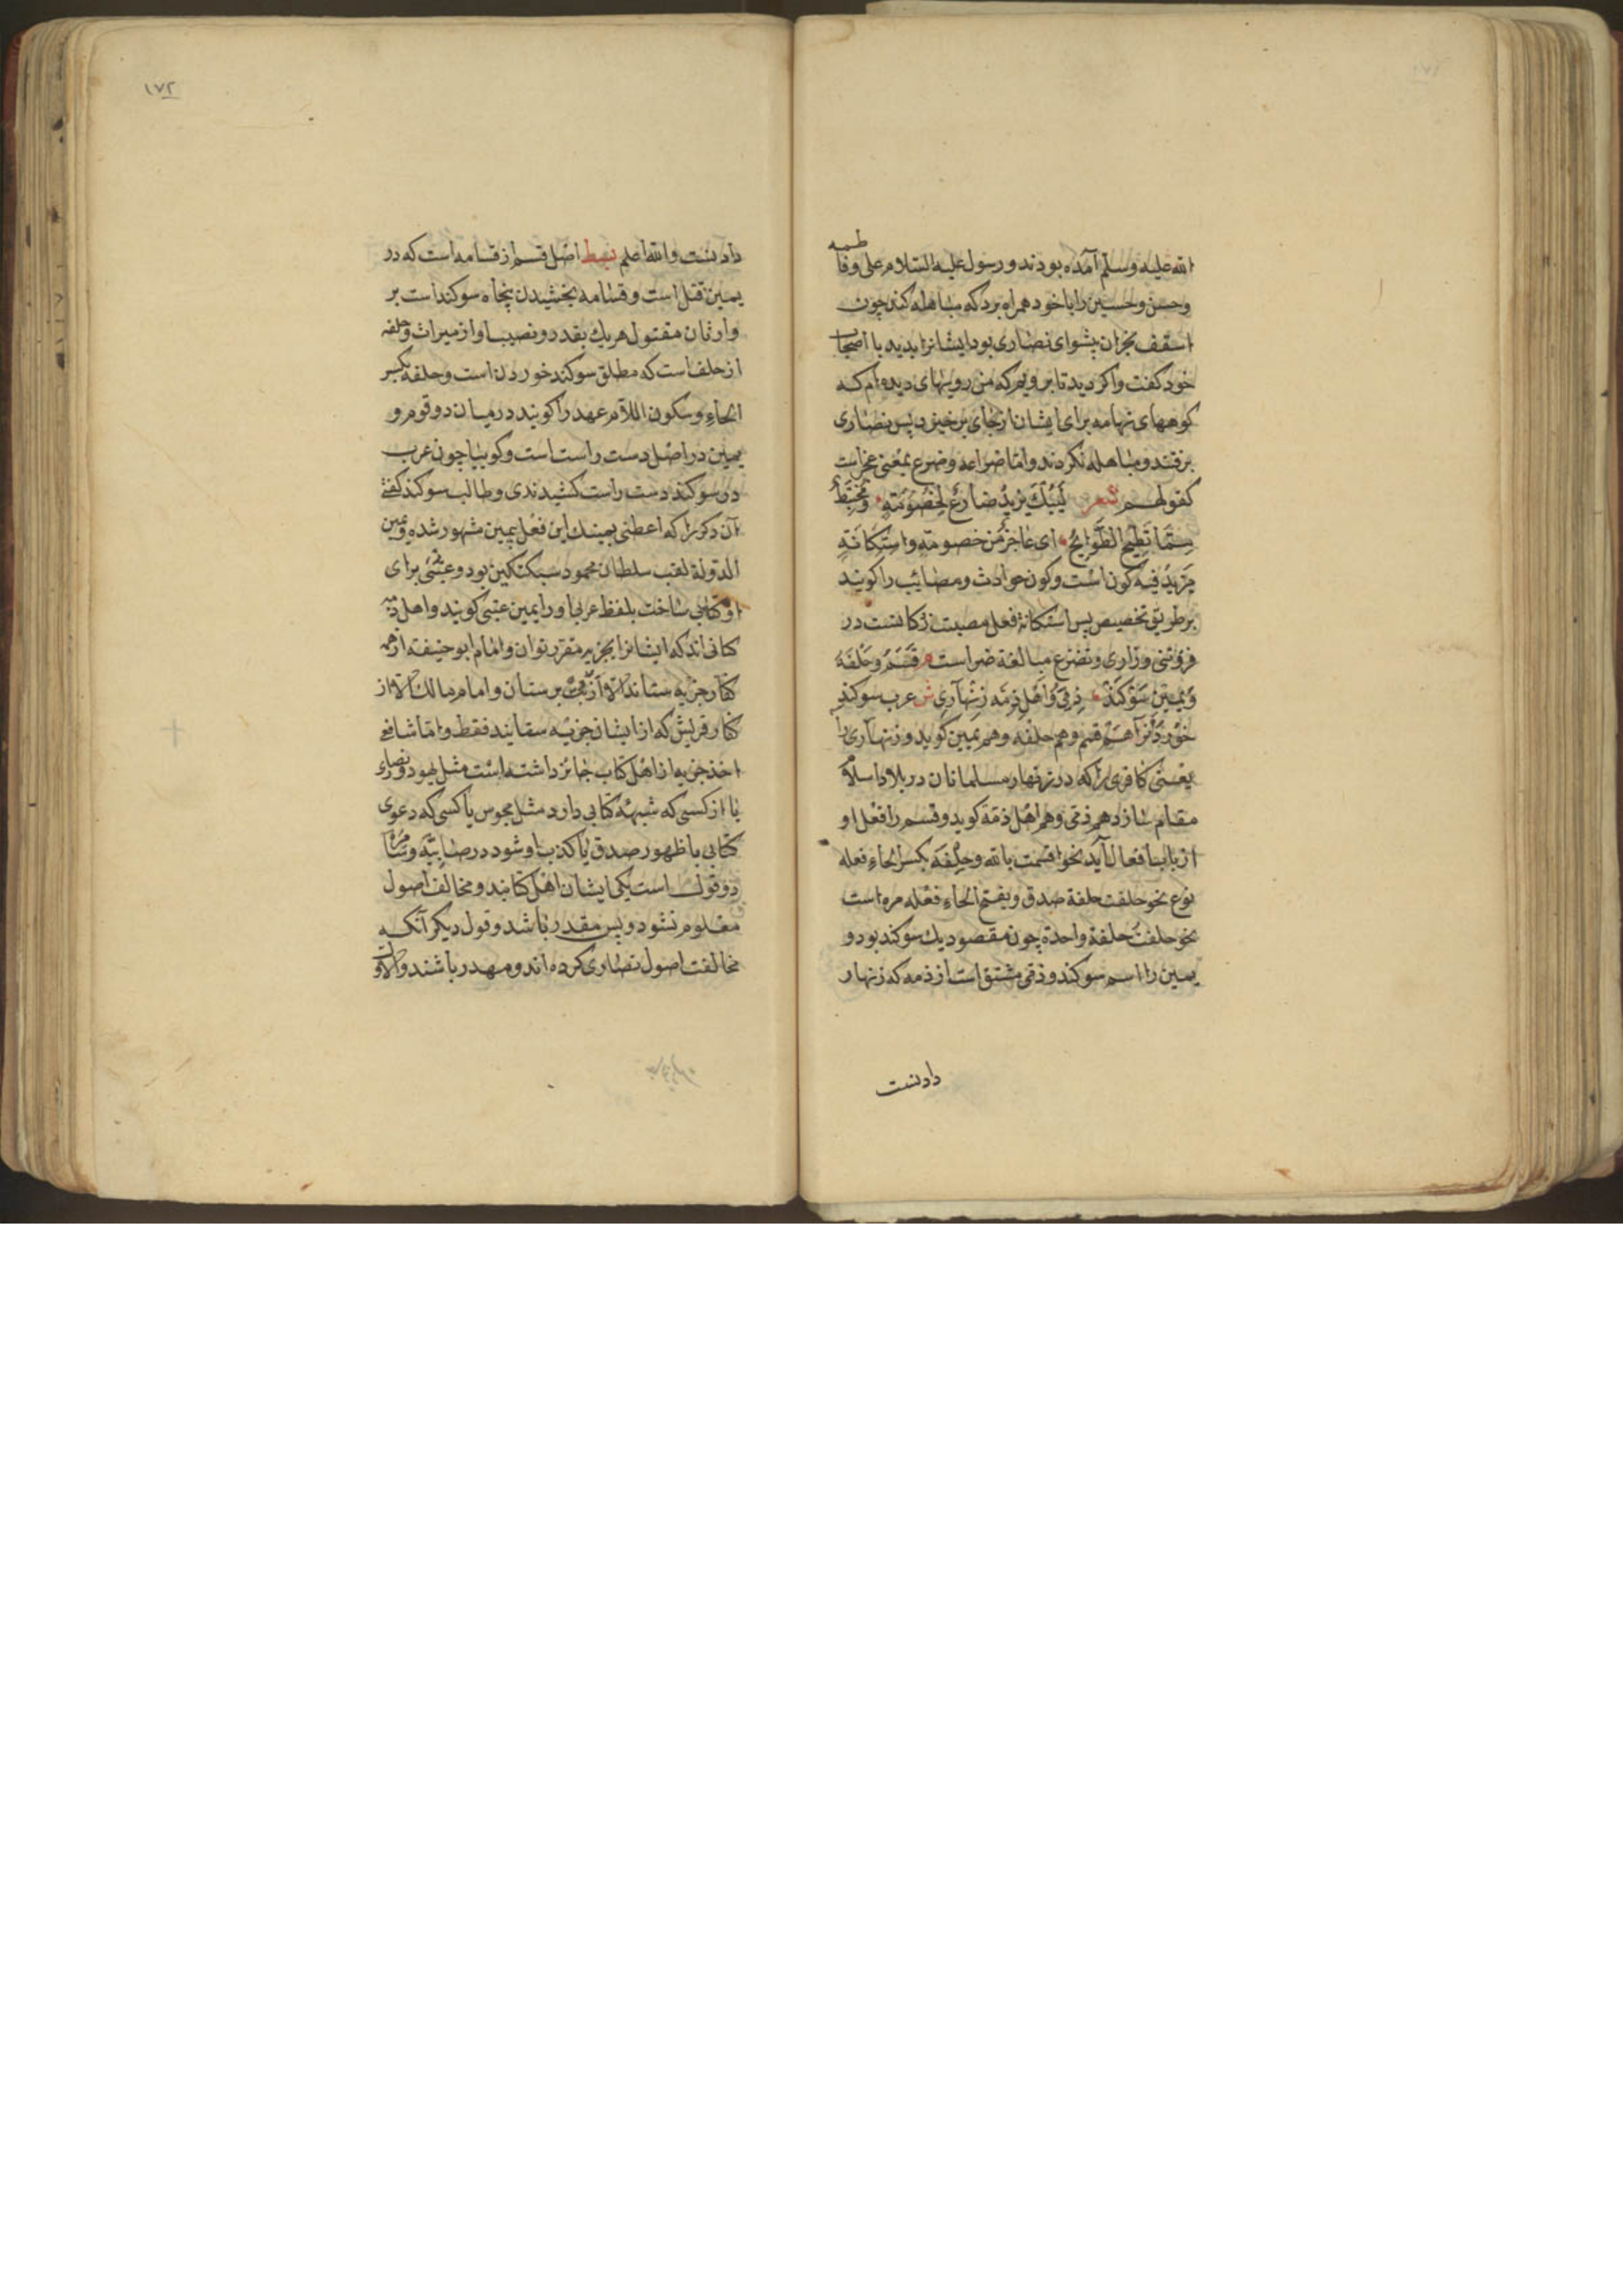 ۱۷۱
الله علیه وسلم آمده بودند و رسول علیه السلام علی و فاطمه
و حسن و حسین را با خود همراه برد که مباهله کند چون
اسقف نجران پشوای نصاری بود ایشانرا بدید با اصحاب
خود کفت واکردید تا برویم که من رویهای دیده‌ام که
کوههای تهامه برای ایشان از جای برخیزد پس نصاری
برفتند و مباهله نکردند و اما ضراعه و ضرع بمعنی عجز است
کقولهم شعر لَیُبْكَ یَزِیدُ ضارِعٌ لِخُصُومَةٍ وَمُخْتَبِطٌ
مِمَّا تُطِیحُ الطَّوَایحُ ای عاجز من خصومته و استکانةٍ
مزید فیه کون است و کون حوادث و مصائب را کویند
بر طریق تخصیص پس استکانة فعل مصیبت زکانست در
فروتنی و زاری و تضرع مبالغة ضراست م قَسَم و حَلْفَهْ
وَ یَمین سَوْکَندْ ذِمّی وَ اَهْلِ ذِمَّه زِنْهَارِی ش عرب سوکند
خوردن را هم قسم و هم حلفه و هم یمین کوید و زنهاری را
یعنی کافری را که در زنهار مسلمانان در بلاد اسلام
مقام سازد هم ذمی و هم اهل ذمة کوید و قسم را فعل او
از باب افعال آید نحو اقسمت بالله و حِلْفَه بکسر الحاء فعله
نوع نحو حلفت حلفة صدق و بفتح الحاء فعله مره است
نحو حلفت حلفة واحدة چون مقصود یك سوکند بود و
یمین را اسم سوکند و ذمی مشتق است از ذمه که زنهار
دادنست
۱۷۲
دادنست والله اعلم بسط اصل قسم از قسامه است که در
یمین قتل است و قسامه بخشیدن پنجاه سوکند است بر
وارثان مقتول هر یك بقدر و نصیب او از میراث و حلفه
از حلف است که مطلق سوکند خوردن است و حلفه بکسر
الحاء و سکون اللام عهد را کویند در میان دو قوم و
یمین در اصل دست راست است و کوییا چون عرب
در سوکند دست راست کشیدندی و طالب سوکند کفتی
آن دکر را که اعطنی یمینك این فعل بیمین مشهور شده و یمین
الدولة لقب سلطان محمود سبکتکین بود و عتبی برای
او کتابی ساخت بلفظ عربی او را یمین عتبی کویند و اهل ذمه
کسانی‌اند که ایشانرا بجزیه مقرر توان و امام ابو حنیفه از همه
کفار جزیه ستاند الا از بت پرستان و امام مالك الا از
کفار قریش که از ایشان جزیه ستانند فقط و اما شافعی
اخذ جزیه از اهل کتاب جائز داشته است مثل یهود و نصاری
یا از کسی که شبهه کتابی دارد مثل مجوس یا کسی که دعوی
کتابی با ظهور صدق یا کذب او شود در صابیّه و سامره
دو قول است یکی ایشان اهل کتابند و مخالف اصول
معلوم نشود و پس مقدر باشد و قول دیکر آنکه
مخالفت اصول نصاری کرده‌اند و مهدر باشند و الاول